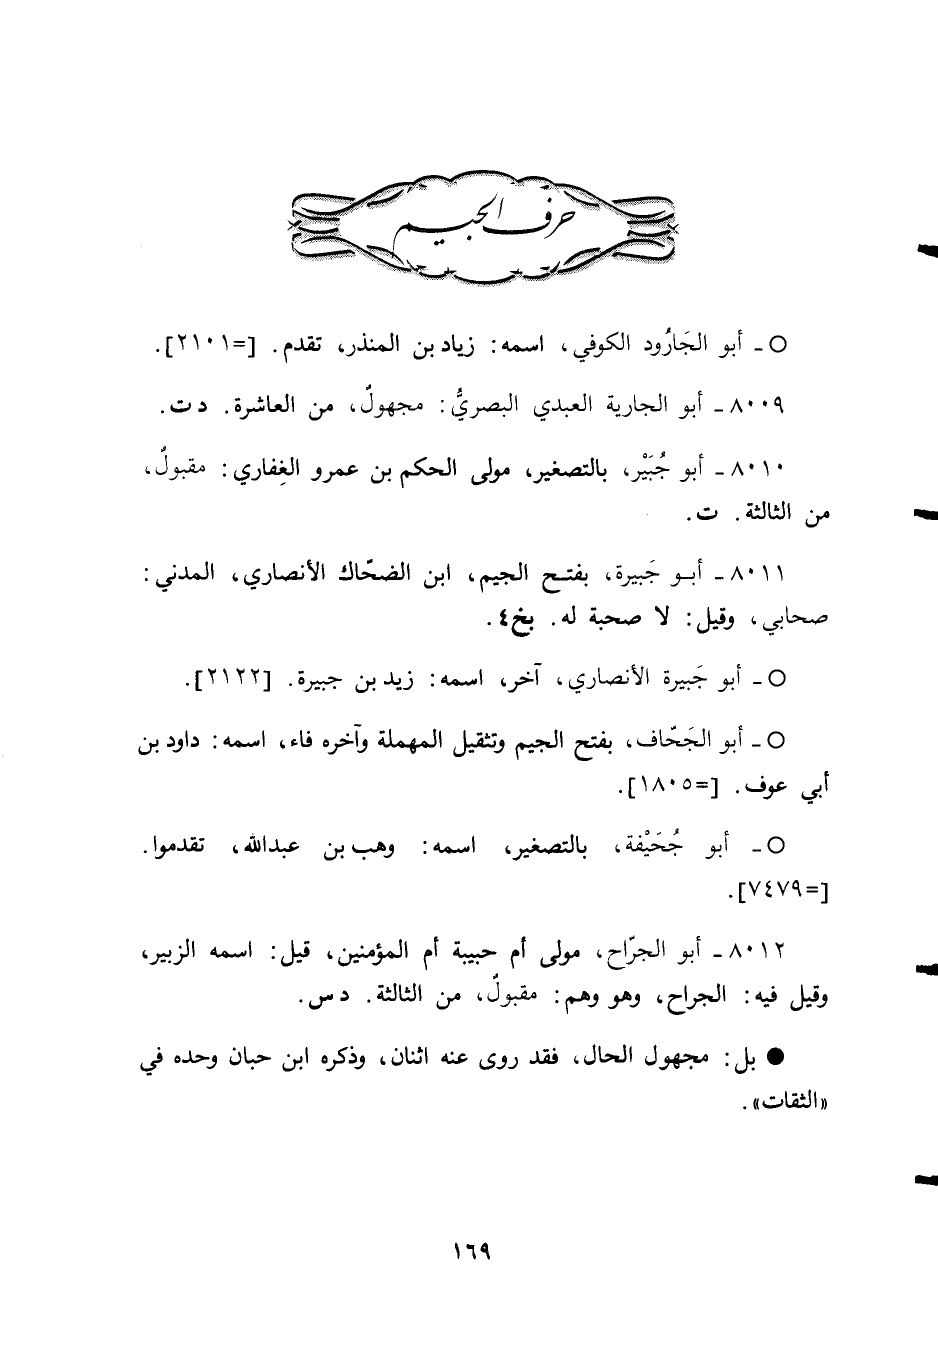 حرف الجيم
○ ـ أبو الجَارُود الكوفي، اسمه: زياد بن المنذر، تقدم. [=٢١٠١].
٨٠٠٩ ـ أبو الجارية العبدي البصريُّ: مجهولٌ، من العاشرة. د ت.
٨٠١٠ ـ أبو جُبَيْر، بالتصغير، مولى الحكم بن عمرو الغِفاري: مقبولٌ،
من الثالثة. ت.
٨٠١١ ـ أبو جَبيرة، بفتح الجيم، ابن الضحّاك الأنصاري، المدني:
صحابي، وقيل: لا صحبة له. بخ٤.
○ ـ أبو جَبيرة الأنصاري، آخر، اسمه: زيد بن جبيرة. [٢١٢٢].
○ ـ أبو الجَحّاف، بفتح الجيم وتثقيل المهملة وآخره فاء، اسمه: داود بن
أبي عوف. [=١٨٠٥].
○ ـ أبو جُحَيْفة، بالتصغير، اسمه: وهب بن عبدالله، تقدموا.
[=٧٤٧٩].
٨٠١٢ ـ أبو الجرّاح، مولى أم حبيبة أم المؤمنين، قيل: اسمه الزبير،
وقيل فيه: الجراح، وهو وهم: مقبولٌ، من الثالثة. د س.
● بل: مجهول الحال، فقد روى عنه اثنان، وذكره ابن حبان وحده في
«الثقات».
١٦٩